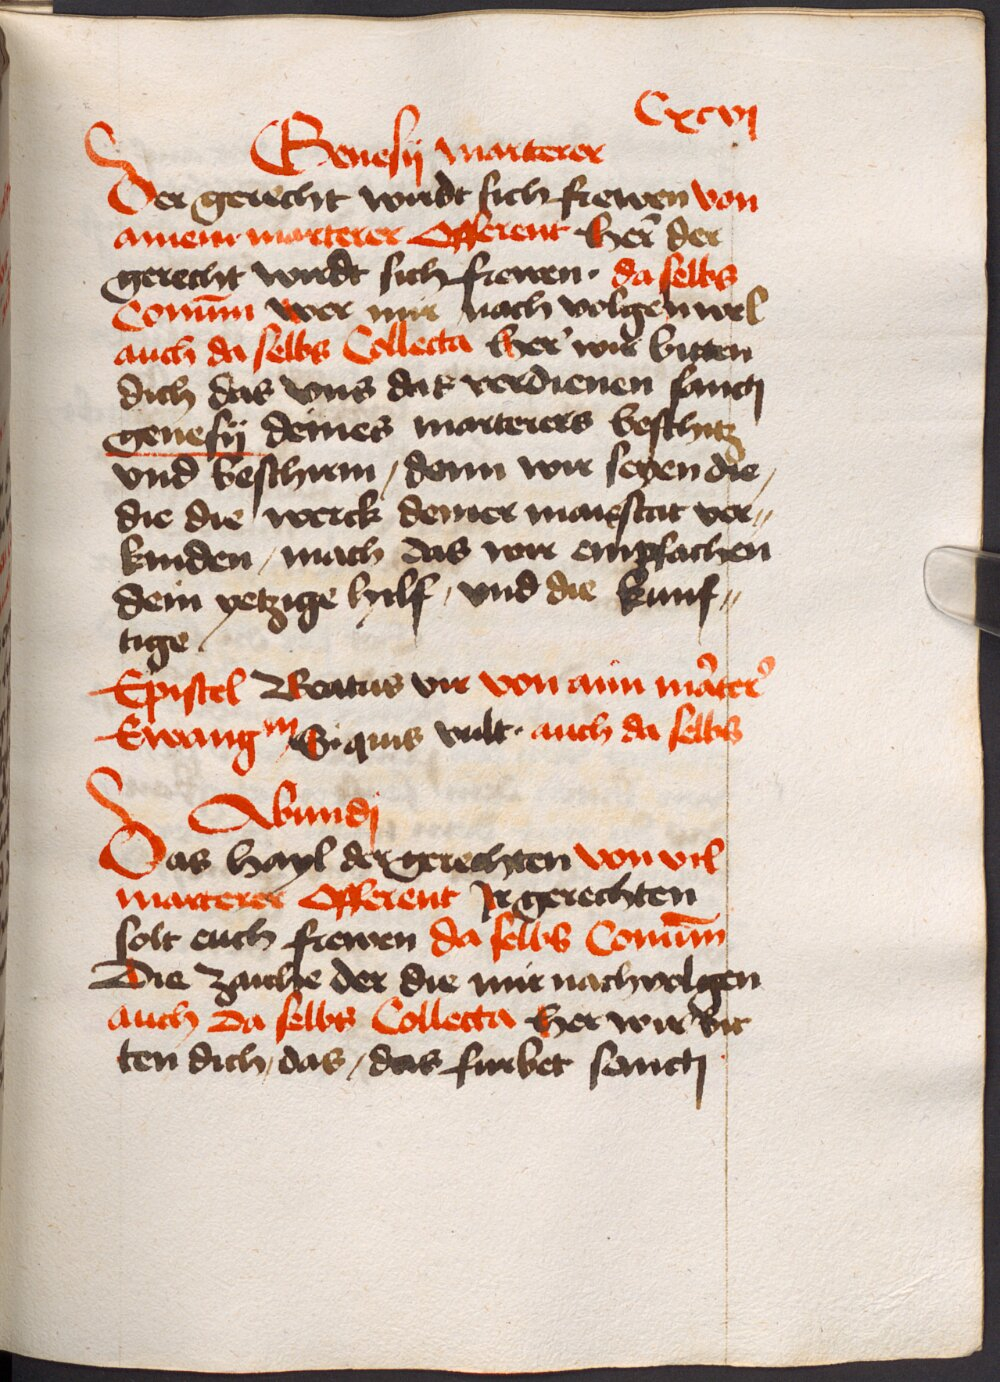 Cxcvj
Genesij marterer
Der gerecht wirdt sich frewen von
ainem marterer Offerent her der
gerecht wirdt sich frewen. da selbs
Comūn wer mir nach volgen wel
auch da selbs Collecta her wir bitten
dich das vns daz verdienen sancti
genesij deines marterers beschitz
vnd beschirm / denn wir seyen die /
die die werck deiner maiestat ver„
kinden / mach das wir empfachen
dein yetzige hilf / vnd die kunf„
tige
Epistel Beatus vir von aim marter
Ewangm Si quis vult. auch da selbs
Abundj
Das hayl der gerechten von vil
marterer Offerent Jr gerechten
solt euch frewen da selbs Comūn
Die zaiche der die mir nachvolgen
auch da selbs Collecta her wir bit
ten dich, das / das furbet sancti